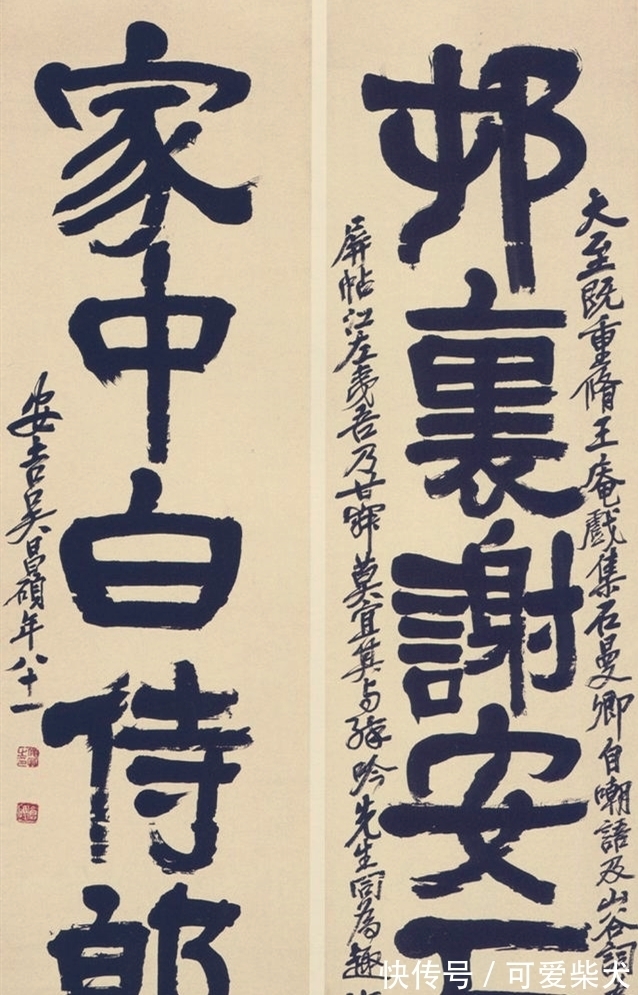 邨裏謝安
大至既重脩王庵戲集石曼卿自嘲語及山谷詞
屏帖江左夷吾乃甘 莫宜其与 吟先生同為趣
家中白侍郎
安吉吳昌碩年八十一
快传号 / 可爱柴犬